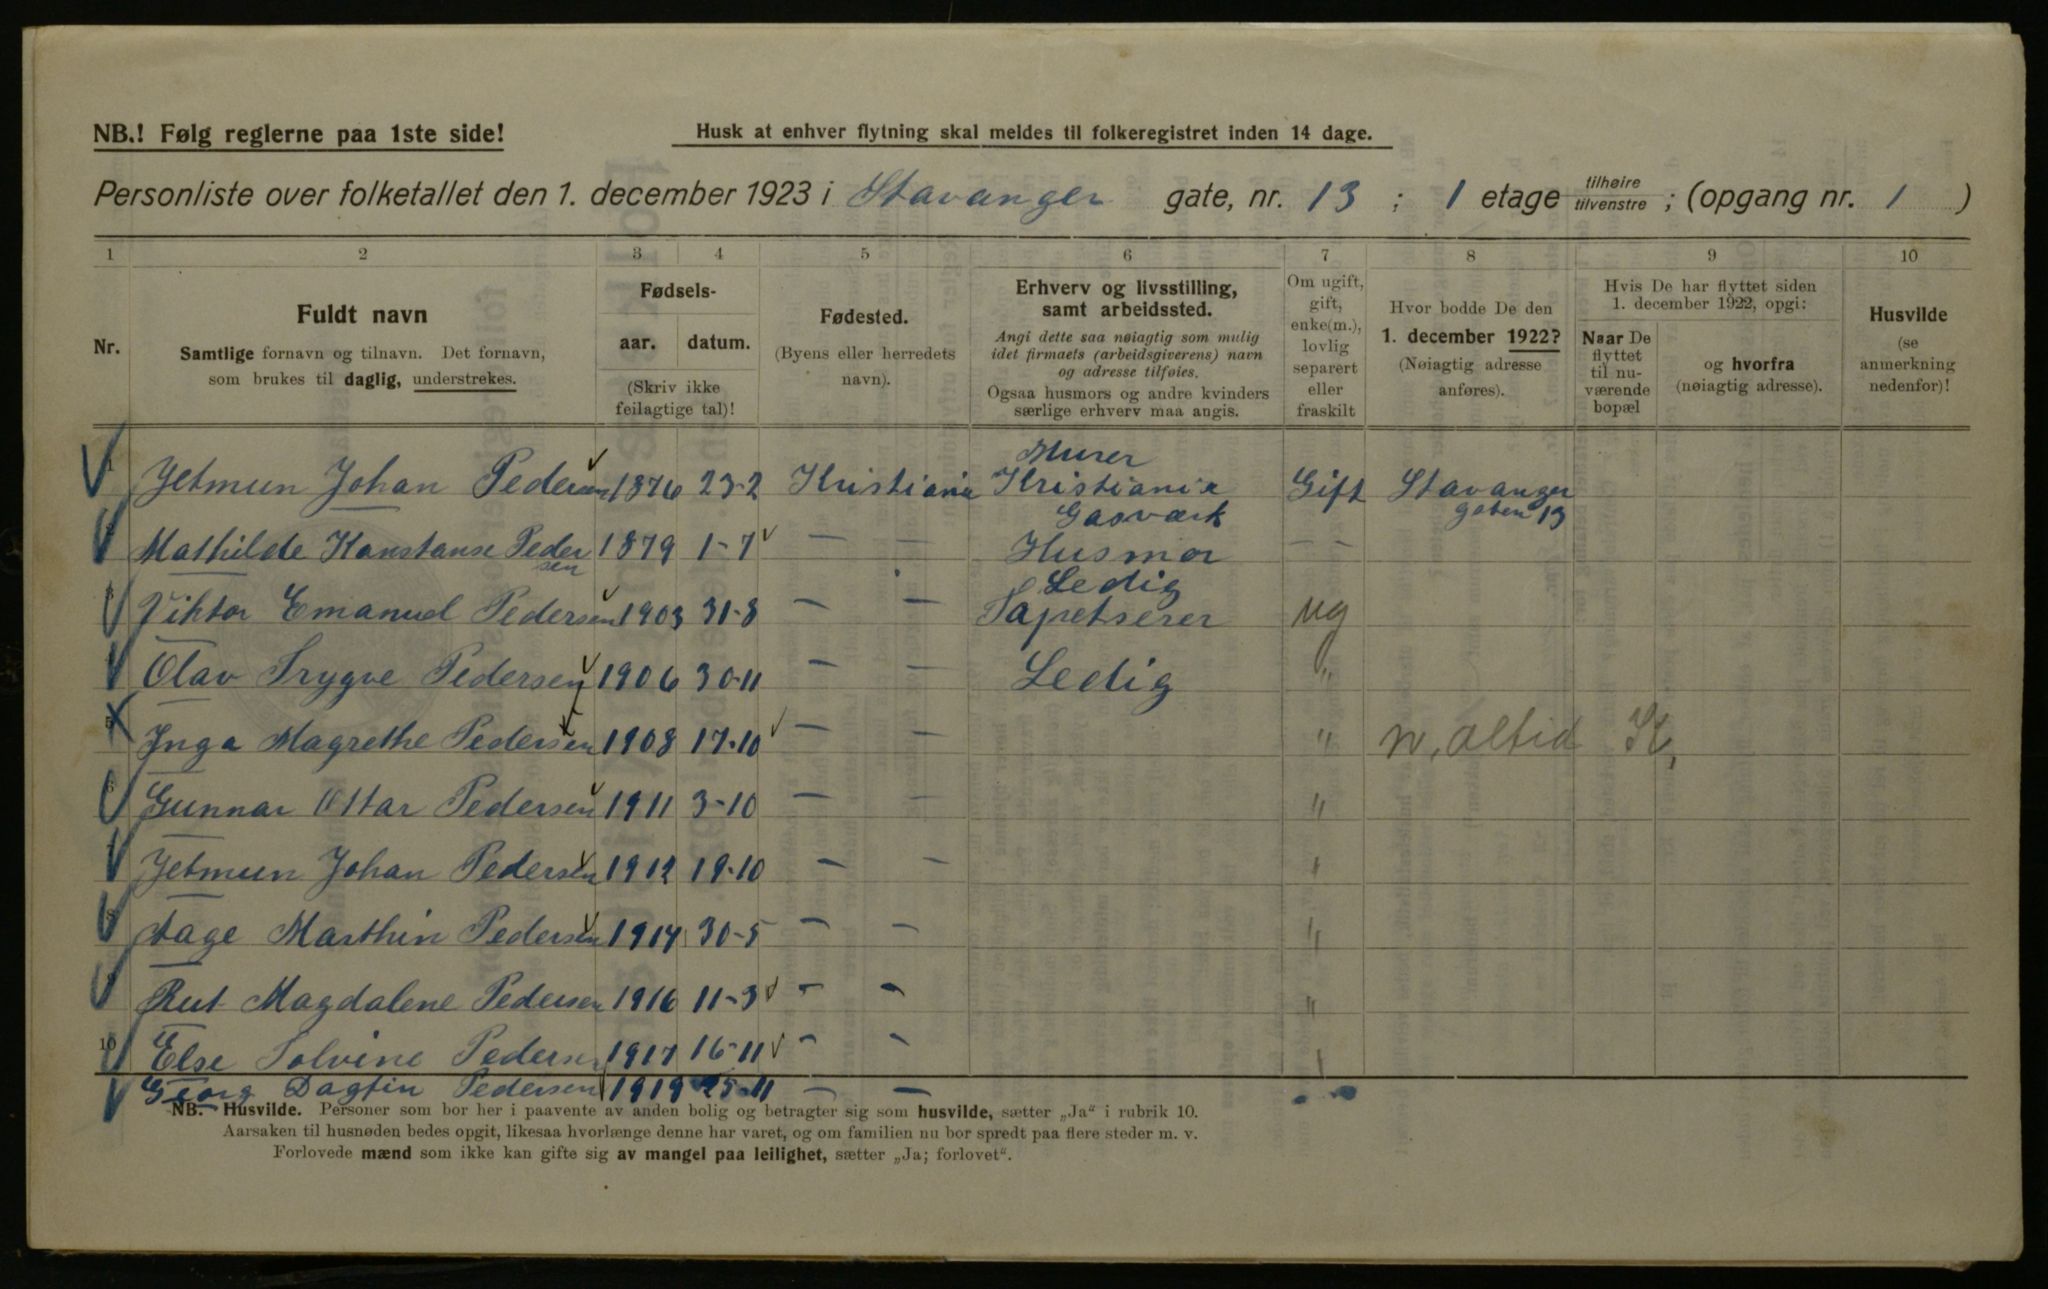 NB.! Følg reglerne paa 1ste side!
Husk at enhver flytning skal meldes til folkeregistret inden 14 dage.
Personliste over folketallet den 1. december 1923 i Stavanger gate, nr. 13 ; 1 etage tilhøire tilvenstre ; (opgang nr. 1 )
1 2 3 4 5 6 7 8 9 10
Nr.
Fuldt navn
Samtlige fornavn og tilnavn. Det fornavn,
som brukes til daglig, understrekes.
Fødsels-
aar. datum.
(Skriv ikke
feilagtige tal)!
Fødested.
(Byens eller herredets
navn).
Erhverv og livsstilling,
samt arbeidssted.
Angi dette saa nøiagtig som mulig
idet firmaets (arbeidsgiverens) navn
og adresse tilføies.
Ogsaa husmors og andre kvinders
særlige erhverv maa angis.
Om ugift,
gift,
enke(m.),
lovlig
separert
eller
fraskilt
Hvor bodde De den
1. december 1922?
(Nøiagtig adresse
anføres).
Hvis De har flyttet siden
1. december 1922, opgi:
Naar De
flyttet
til nu-
værende
bopæl
og hvorfra
(nøiagtig adresse).
Husvilde
(se
anmerkning
nedenfor)!
1 Jetmun Johan Pedersen 1876 23-2 Kristiania Murer Kristiania Gasværk Gift Stavanger gaten 13
Mathilde Konstanse Pedersen 1879 1-7 — — Husmor — —
3 Viktor Emanuel Pedersen 1903 31-8 — — Ledig Tapetserer ug
Olav Trygve Pedersen 1906 30-11 — — Ledig "
5 Inga Magrethe Pedersen 1908 17-10 — — " n. altid K.
6 Gunnar Ottar Pedersen 1911 3-10 — — "
Jetmun Johan Pedersen 1912 19-10 — — "
8 Aage Marthin Pedersen 1914 30-5 — — "
9 Rut Magdalene Pedersen 1916 11-3 — — "
10 Else Solvine Pedersen 1917 16-11 — — "
Georg Dagfin Pedersen 1919 25-11 — —
NB. Husvilde. Personer som bor her i paavente av anden bolig og betragter sig som husvilde, sætter „Ja" i rubrik 10.
Aarsaken til husnøden bedes opgit, likesaa hvorlænge denne har varet, og om familien nu bor spredt paa flere steder m. v.
Forlovede mænd som ikke kan gifte sig av mangel paa leilighet, sætter „Ja; forlovet".